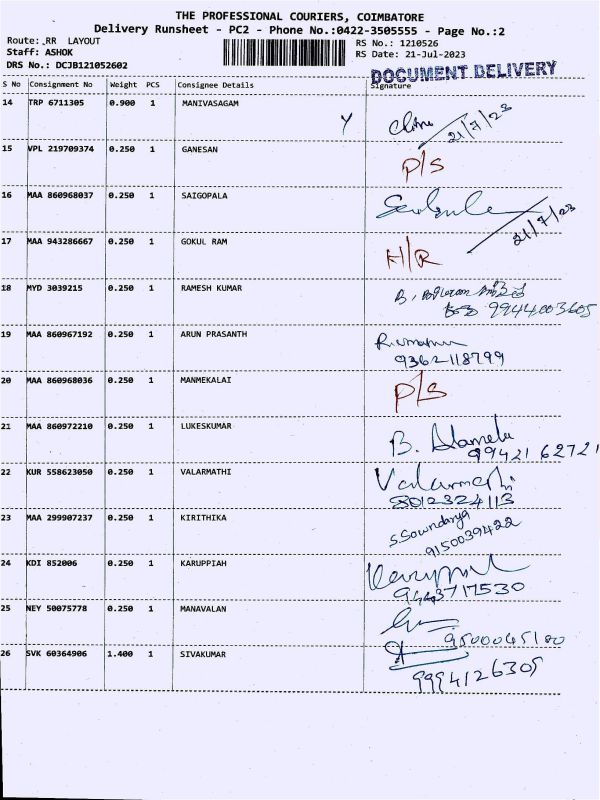 THE PROFESSIONAL COURIERS, COIMBATORE
Delivery Runsheet - PC2 - Phone No.:0422-3505555 - Page No.:2
Route:,RR LAYOUT RS No.: 1210526
Staff: ASHOK RS Date: 21-Jul-2023
DRS No.: DCJB121052602 DOCUMENT DELIVERY
S No Consignment No Weight PCS Consignee Details Signature
14 TRP 6711305 0.900 1 MANIVASAGAM Y 21/7/23
15 VPL 219709374 0.250 1 GANESAN P/S
16 MAA 860968037 0.250 1 SAIGOPALA 21/7/23
17 MAA 943286667 0.250 1 GOKUL RAM H/R
18 MYD 3039215 0.250 1 RAMESH KUMAR B,
9944003605
19 MAA 860967192 0.250 1 ARUN PRASANTH
9362118799
20 MAA 860968036 0.250 1 MANMEKALAI P/S
21 MAA 860972210 0.250 1 LUKESKUMAR B. Alamelu
99421 62721
22 KUR 558623050 0.250 1 VALARMATHI Valarmathi
8012324113
23 MAA 299907237 0.250 1 KIRITHIKA S.Soundarya
9150039422
24 KDI 852006 0.250 1 KARUPPIAH
9443717530
25 NEY 50075778 0.250 1 MANAVALAN
9500045180
26 SVK 60364906 1.400 1 SIVAKUMAR
9994126305